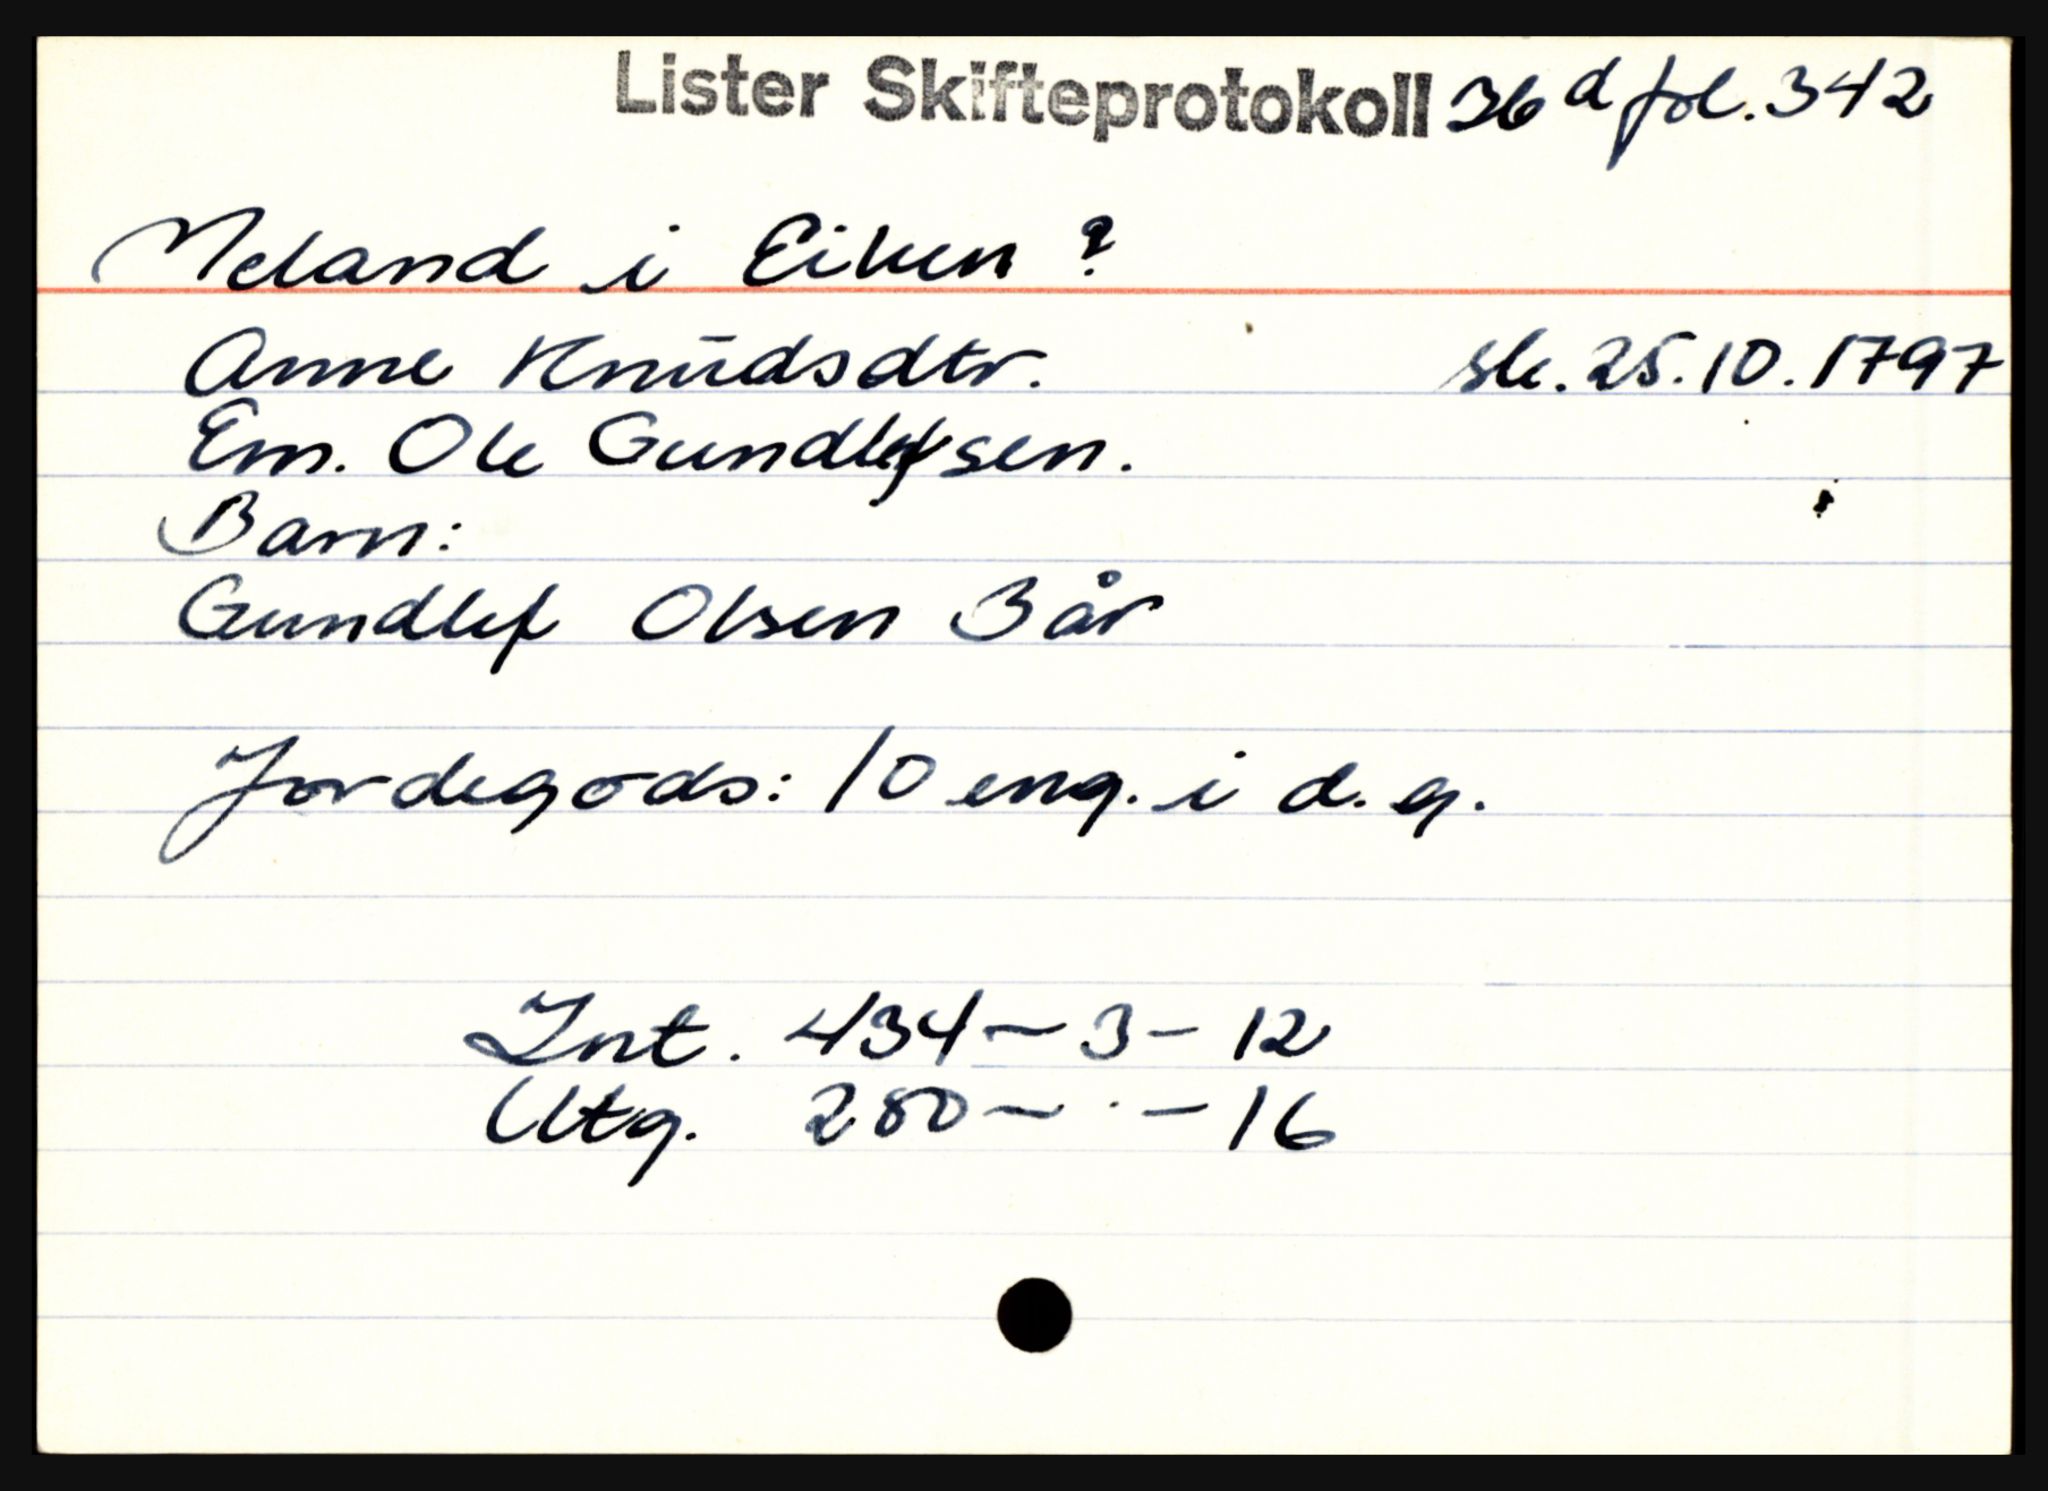 Lister Skifteprotokoll 36 d fol. 342
Meland i Eiken ?
Anne Knudsdtr. sk. 25.10.1797
Em. Ole Gundlefsen.
Barn:
Gundlef Olsen 3 år
Jordegods: 10 eng. i d.g.
Int. 434 - 3 - 12
Utg. 280 - · - 16